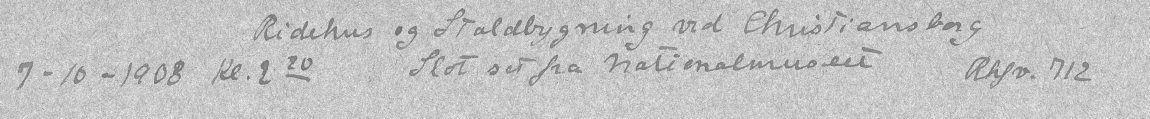 Ridehus og Staldbygning ved Christiansborg
7-10-1908 Kl. 2 20 Slot set fra Nationalmuseet 712